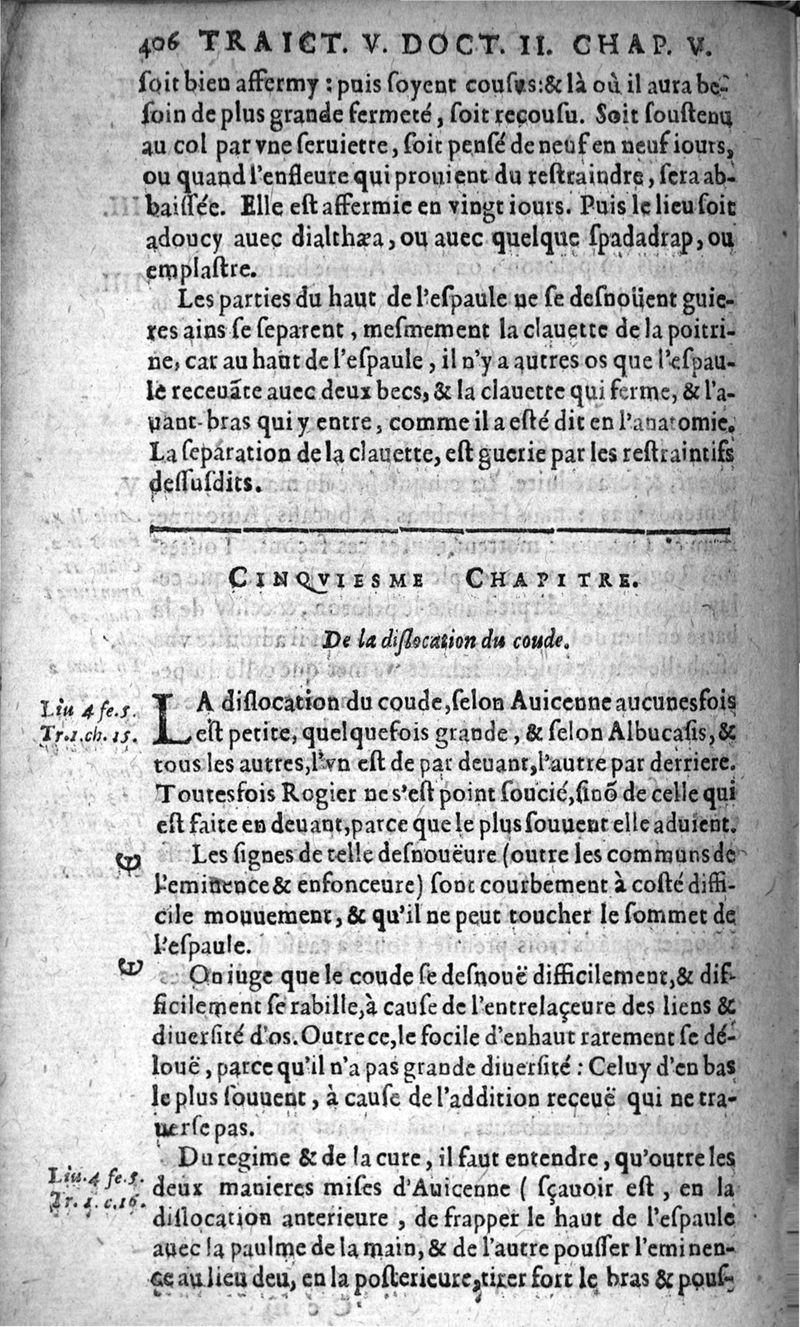 406 TRAICT. V. DOCT. II. CHAP. V.
ſoit bien affermy : puis ſoyent couſus:& là où il aura be-
ſoin de plus grande fermeté, ſoit reçouſu. Soit ſouſtenu
au col par vne ſeruiette, ſoit penſé de neuf en neuf iours,
ou quand l'enfleure qui prouient du reſtraindre, ſera ab-
baiſſée. Elle eſt affermie en vingt iours. Puis le lieu ſoit
adoucy auec dialthæa, ou auec quelque ſpadadrap, ou
emplaſtre.
Les parties du haut de l'eſpaule ne ſe deſnoüent guie-
res ains ſe ſeparent, meſmement la clauette de la poitri-
ne, car au haut de l'eſpaule, il n'y a autres os que l'eſpau-
le receuãte auec deux becs, & la clauette qui ferme, & l'a-
uant-bras qui y entre, comme il a eſté dit en l'anatomie.
La ſeparation de la clauette, eſt guerie par les reſtraintifs
deſſuſdits.
CINQVIESME CHAPITRE.
De la diſlocation du coude.
Liu 4 fe.5.
Tr.1.ch.15.
LA diſlocation du coude, ſelon Auicenne aucunesfois
eſt petite, quelquefois grande, & ſelon Albucaſis, &
tous les autres, l'vn eſt de par deuant, l'autre par derriere.
Toutesfois Rogier ne s'eſt point ſoucié, ſinõ de celle qui
eſt faite en deuant, parce que le plus ſouuent elle aduient.
Les ſignes de telle deſnouëure (outre les communs de
l'eminence & enfonceure) ſont courbement à coſté diffi-
cile mouuement, & qu'il ne peut toucher le ſommet de
l'eſpaule.
On iuge que le coude ſe deſnouë difficilement, & dif-
ficilement ſe rabille, à cauſe de l'entrelaçeure des liens &
diuerſité d'os. Outre ce, le focile d'enhaut rarement ſe dé-
louë, parce qu'il n'a pas grande diuerſité : Celuy d'en bas
le plus ſouuent, à cauſe de l'addition reçeuë qui ne tra-
uerſe pas.
Liu.4 fe.5.
Tr. 1. c.16.
Du regime & de la cure, il faut entendre, qu'outre les
deux manieres miſes d'Auicenne ( ſçauoir eſt, en la
diſlocation anterieure, de frapper le haut de l'eſpaule
auec la paulme de la main, & de l'autre pouſſer l'eminen-
ce au lieu deu, en la poſterieure, tirer fort le bras & pouſ-